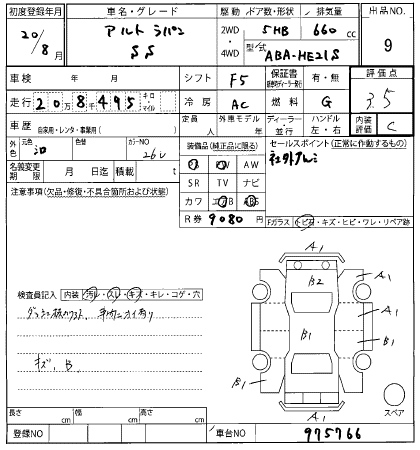 初度登録年月
車名・グレード
駆動
ドア数・形状
排気量
出品NO.
20/8月
アルト ラパン
SS
2WD・4WD
5HB
660cc
型式
ABA-HE21S
9
車検
年 月
シフト
F5
保証書
有・無
評価点
走行
20万8千495
キロ・マイル
冷房
AC
燃料
G
3.5
車歴
自家用・レンタ・事業用( )
車両No.
外車モデル
年
ディーラー・並行
ハンドル
左・右
内装評価
C
外色
元色
色替
カラーNO
26U
装備品(純正品に限る)
セールスポイント(正常に作動するもの)
社外アルミ
名義変更期限
月 日迄
積載
t
SR TV ナビ
カワ エアB ABS
AW
注意事項(欠品・修復・不具合箇所および状態)
R券
9080円
Fガラス
トビ石・キズ・ヒビ・ワレ・リペア跡
A1
B2
A1
A1
検査員記入
内装
汚レ・スレ・キズ・キレ・コゲ・穴
B1
B1
B1
キズ、B
A1
スペア
長さ cm
幅 cm
高さ cm
登録NO
車台NO
975766